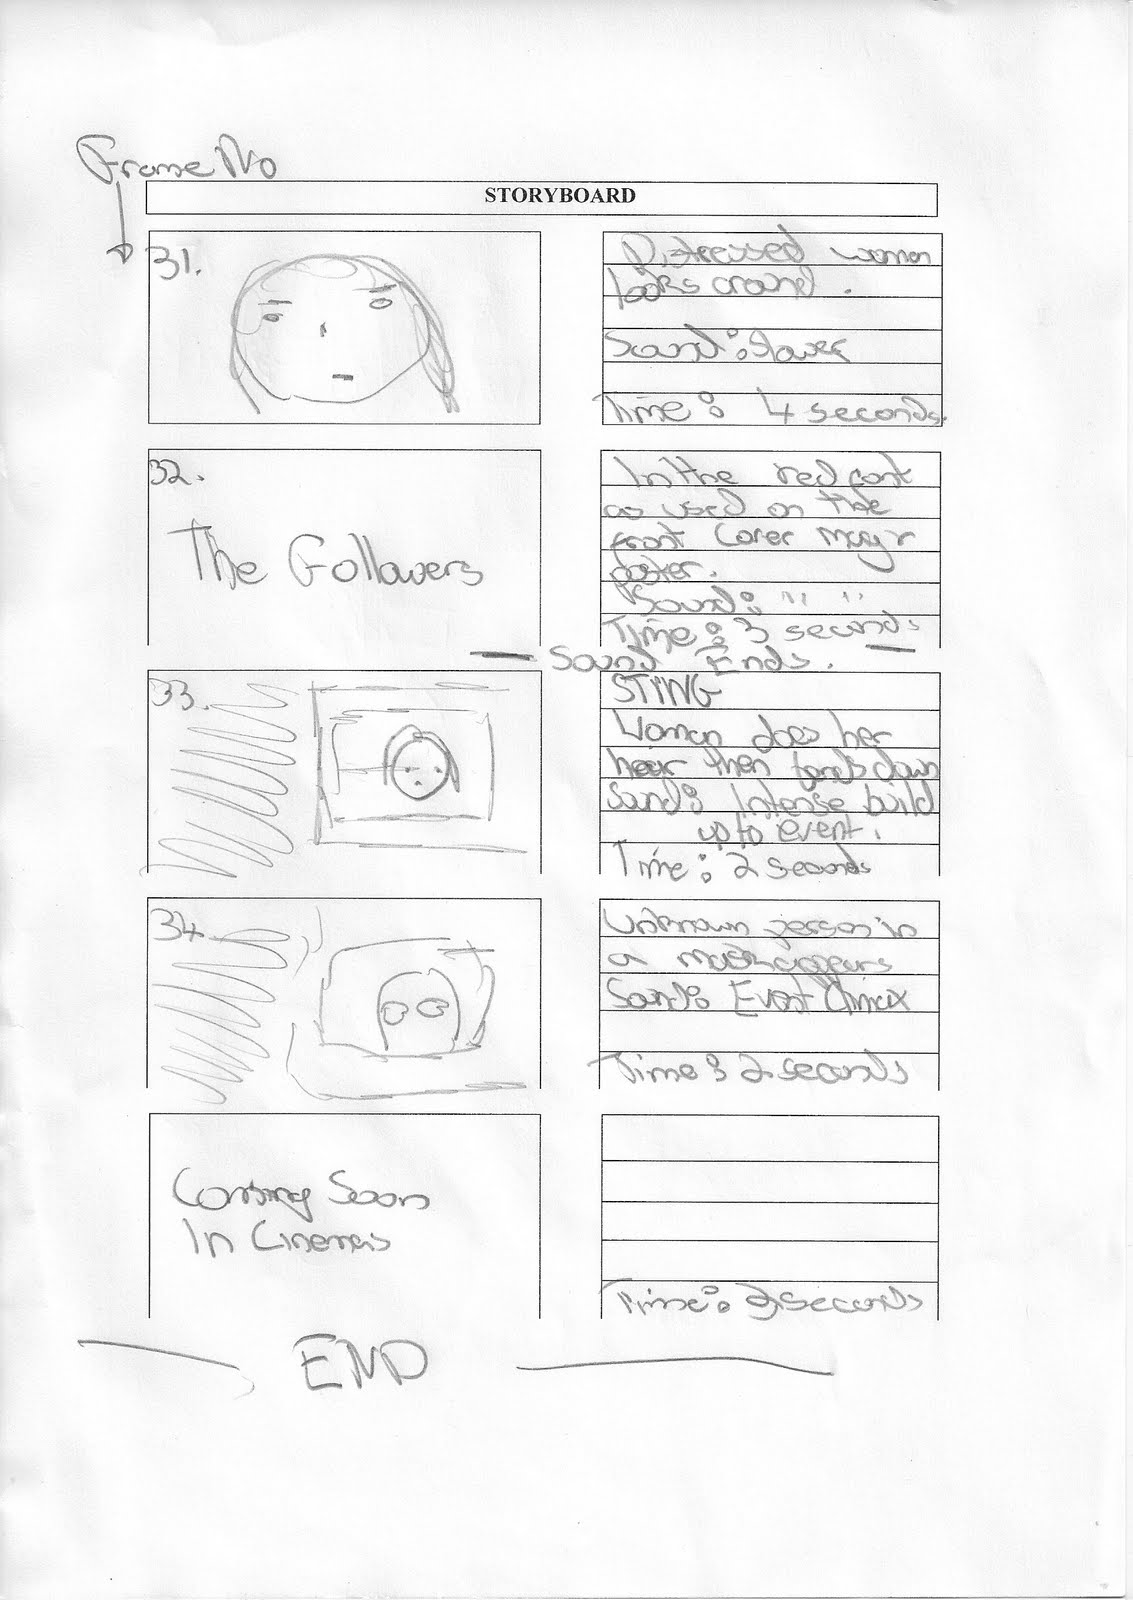 Frame No
STORYBOARD
31.
Distressed woman
looks around.
Sound: Slower
Time: 4 seconds.
32.
The Followers
In the red font
as used on the
front cover mag n
poster.
Sound: " "
Time: 3 seconds
— Sound Ends. —
33.
STING
Woman does her
hair then bends down
Sound: Intense build
up to event.
Time: 2 seconds
34.
Unknown person in
a mask appears
Sound: Event Climax
Time: 2 seconds
Coming Soon
In Cinemas
Time: seconds
END